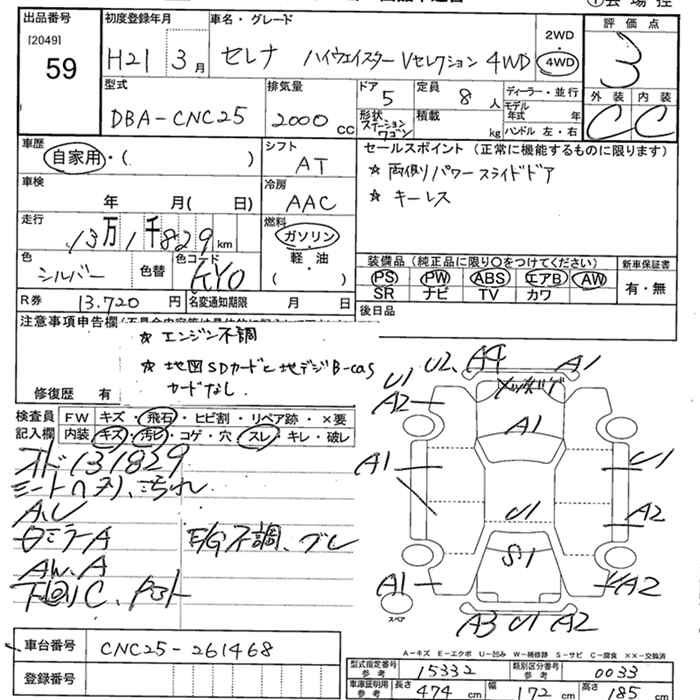 出品番号
[2049]
59
初度登録年月
H21 3月
車名・グレード
セレナ ハイウェイスター Vセレクション 4WD
2WD
4WD
評価点
3
外装 内装
C C
型式
DBA-CNC25
排気量
2000 CC
ドア
5
定員
8 人
形状
ステーションワゴン
積載
kg
ディーラー・並行
モデル年式 年
ハンドル 左・右
車歴
自家用・( )
シフト
AT
車検
年 月( 日)
冷房
AAC
走行
13万1千829km
燃料
ガソリン
軽・油
( )
色
シルバー
色替
色コード
KY0
R券 13.720円
名変通知期限 月 日
セールスポイント(正常に機能するものに限ります)
★ 両側パワースライドドア
★ キーレス
装備品(純正品に限り○をつけてください)
PS PW ABS エアB AW
SR ナビ TV カワ
新車保証書
有・無
後日品
注意事項申告欄
★ エンジン不調
★ 地図SDカードと地デジB-cas
カードなし
修復歴 有
検査員記入欄
FW キズ・飛石・ヒビ割・リペア跡・×要
内装 キズ・汚ヒ・コゲ・穴・スレ・キレ・破レ
オド131829
シートヘタリ、汚れ
A.U
ロミラA
E/G不調、ブレ
AW.A
下回りC、
U2 A4 A1
U1
A2
A1
A1
U1
U1
A2
S1
A1
A2
A3 U1 A2
スペア
A-キズ E-エクボ U-凹み W-補修跡 S-サビ C-腐食 ××-交換済
車台番号
CNC25-261468
登録番号
型式指定番号 参考
15332
類別区分番号 参考
0033
車庫証明用 参考
長さ 474 cm
幅 172 cm
高さ 185 cm